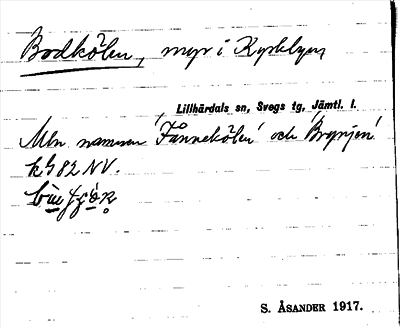 Bodkölen, myr i Kyrkbyn,
Lillhärdals sn, Svegs tg, Jämtl. l.
Mln. namnen 'Fånnekölen' och 'Brynjen'
k 982 NV.
S. ÅSANDER 1917.